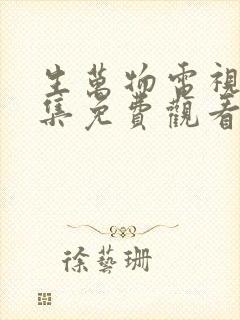 生萬物電視
集免費觀看
徐藝珊